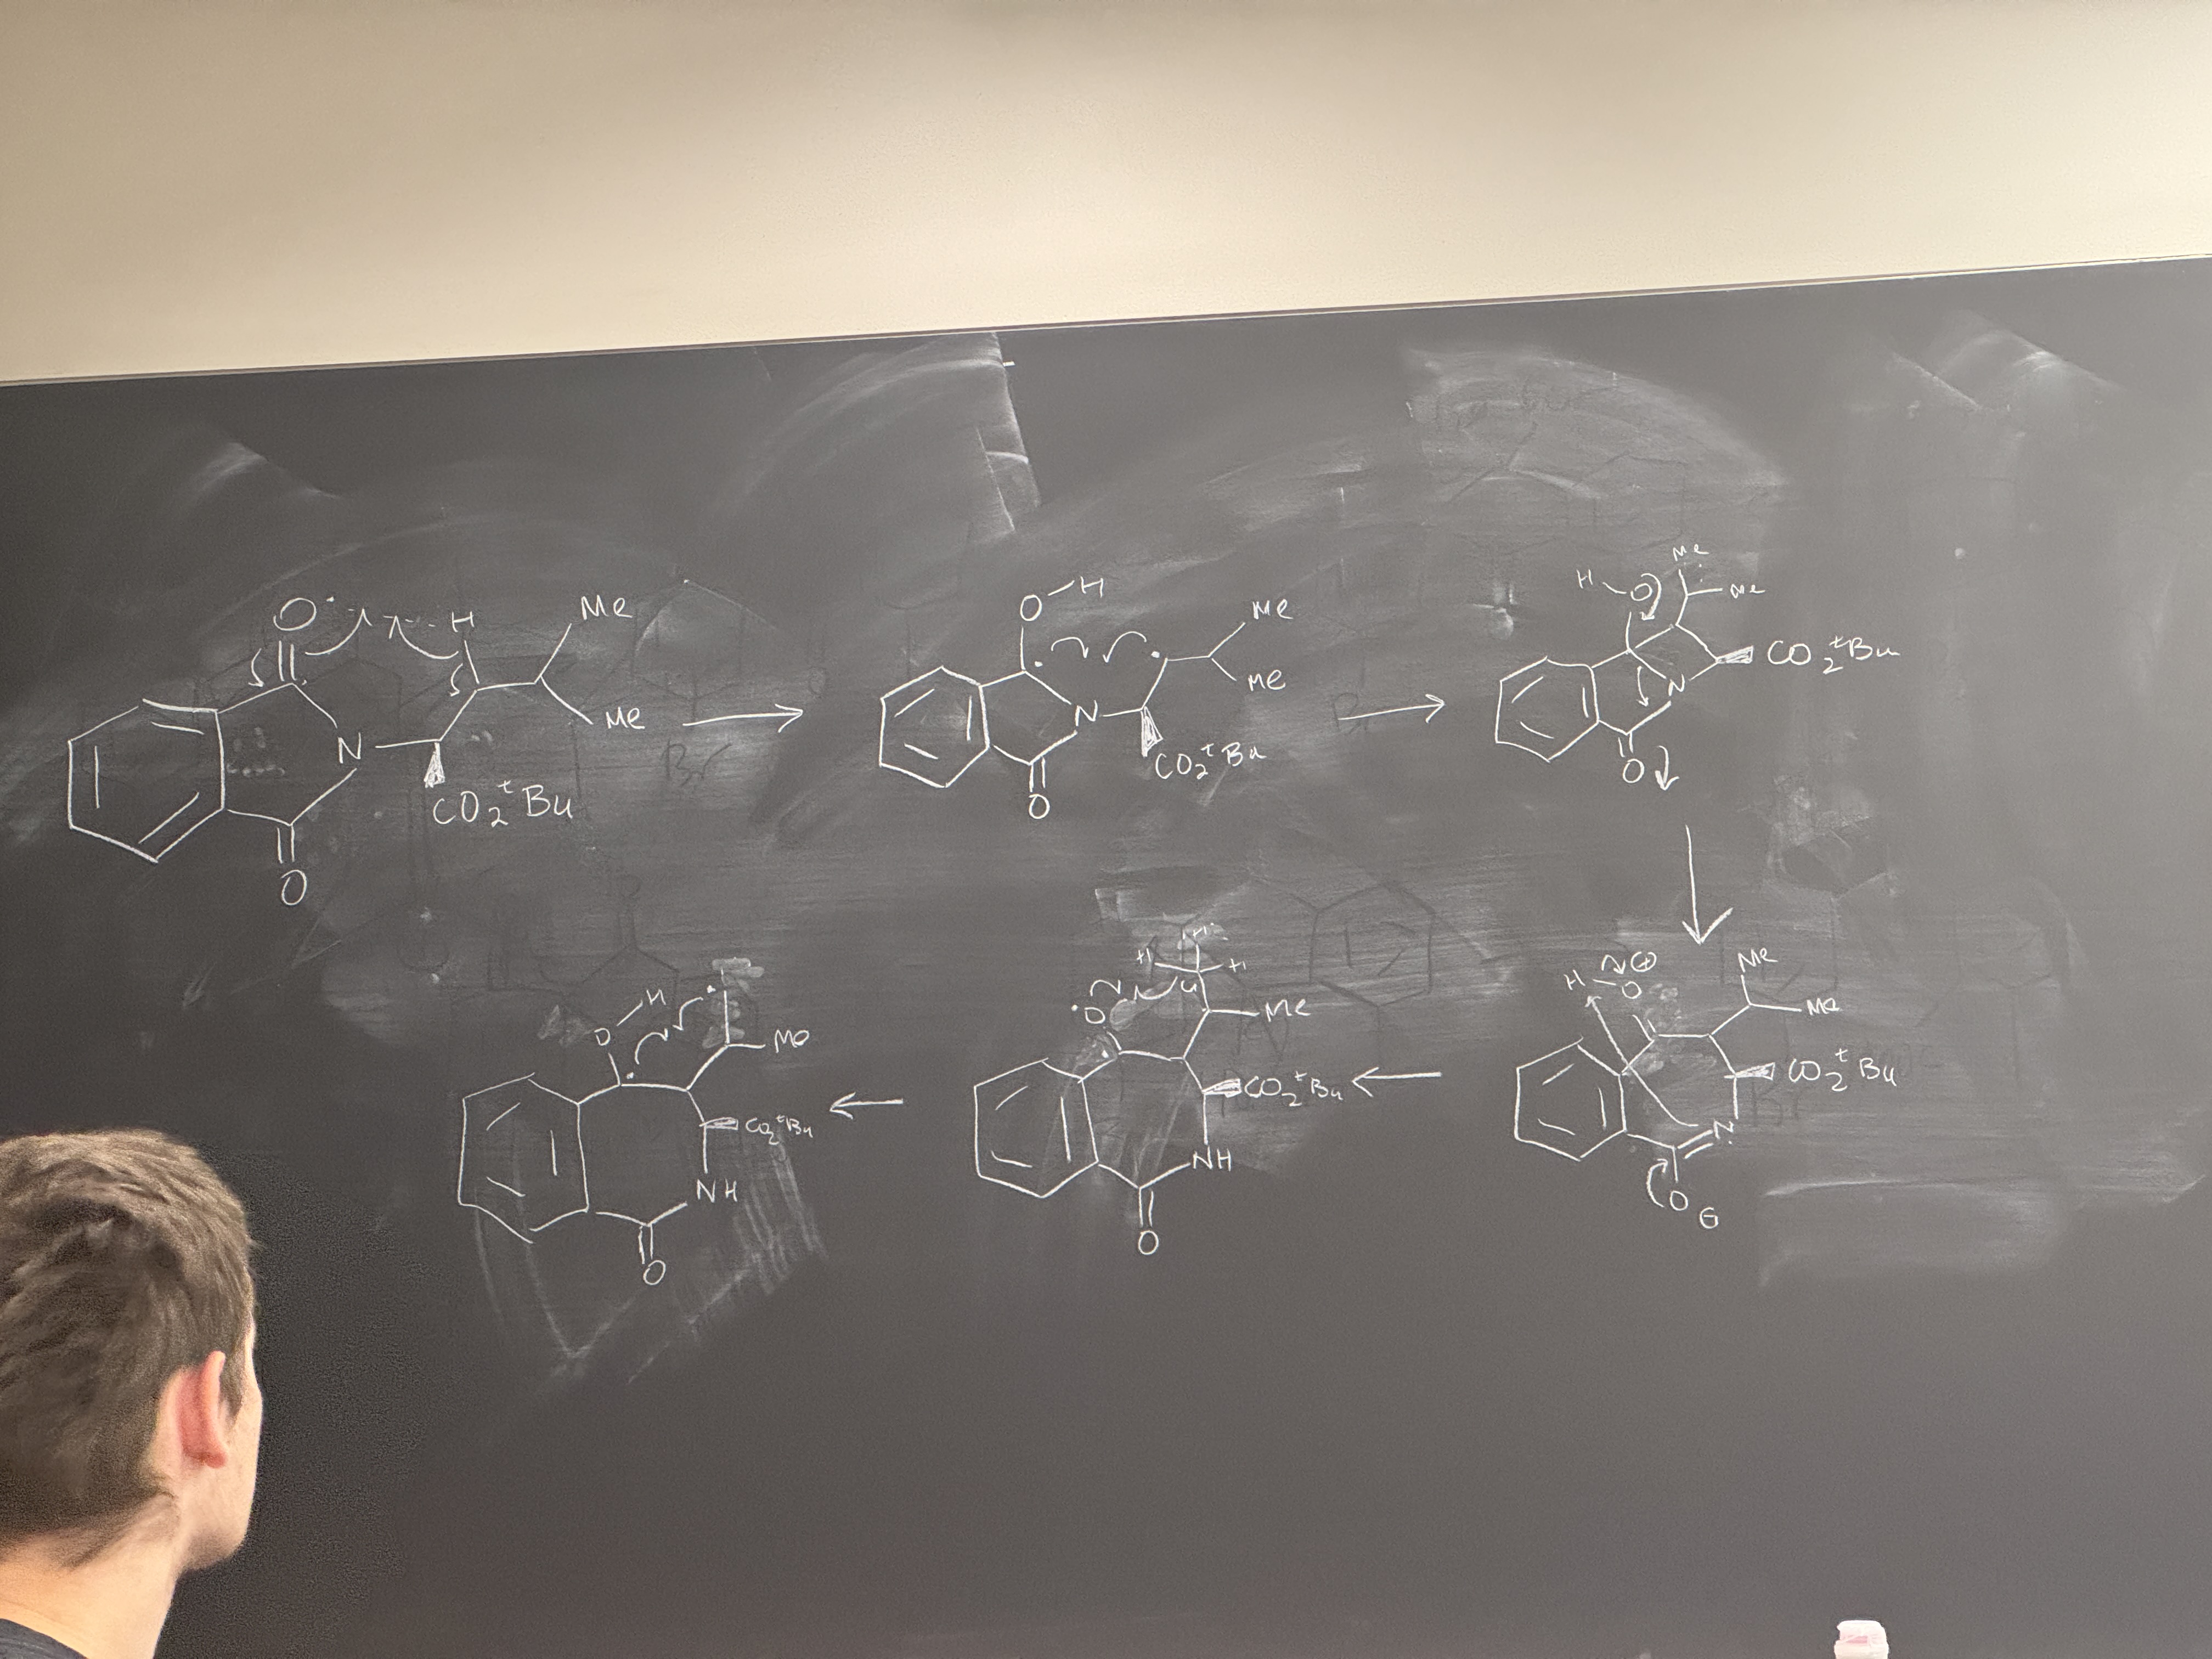 O H Me
Me
N
CO2tBu
O
O H
Me
Me
N
CO2tBu
O
Me
H O Me
CO2tBu
N
O
H O ⊕
Me
Me
CO2tBu
N
O ⊖
H
H H
O
Me
CO2tBu
NH
O
O H
Me
CO2tBu
NH
O